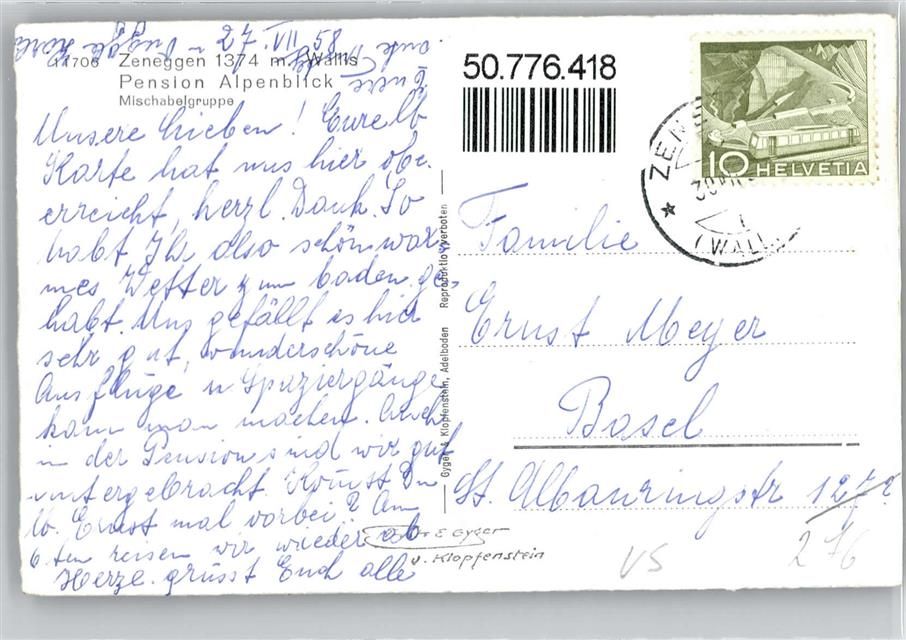 27. VII 58
G7706 Zeneggen 1374 m. Wallis
Pension Alpenblick
Mischabelgruppe
Unsere Lieben! Eure lb
Karte hat uns hier obe.
erreicht, herzl. Dank. So
habt Ihr also schön war,
mes Wetter zum baden ge-
habt. Uns gefällt es hier
sehr gut, wunderschöne
Ausflüge u Spaziergänge
kann man machen. Auch
in der Pension sind wir gut
untergebracht. Kommst Du
lb. Ernst mal vorbei? Am
6. ten reisen wir wieder ab
Herzl. grüsst Euch alle
Eure
Gyger & Klopfenstein, Adelboden Reproduktion verboten
50.776.418
10 HELVETIA
ZENE
(WALL.)
Familie
Ernst Meyer
Basel
St. Albanringstr 127
276
E Gyger
u. Klopfenstein
VS